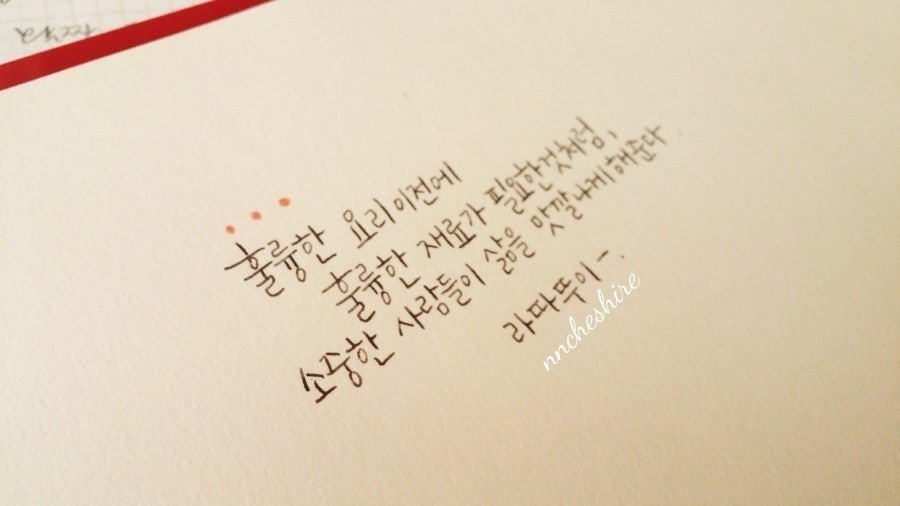 훌륭한 요리 이전에
훌륭한 재료가 필요한것처럼,
소중한 사람들이 삶을 맛깔나게 해준다
라따뚜이-.
nncheshire